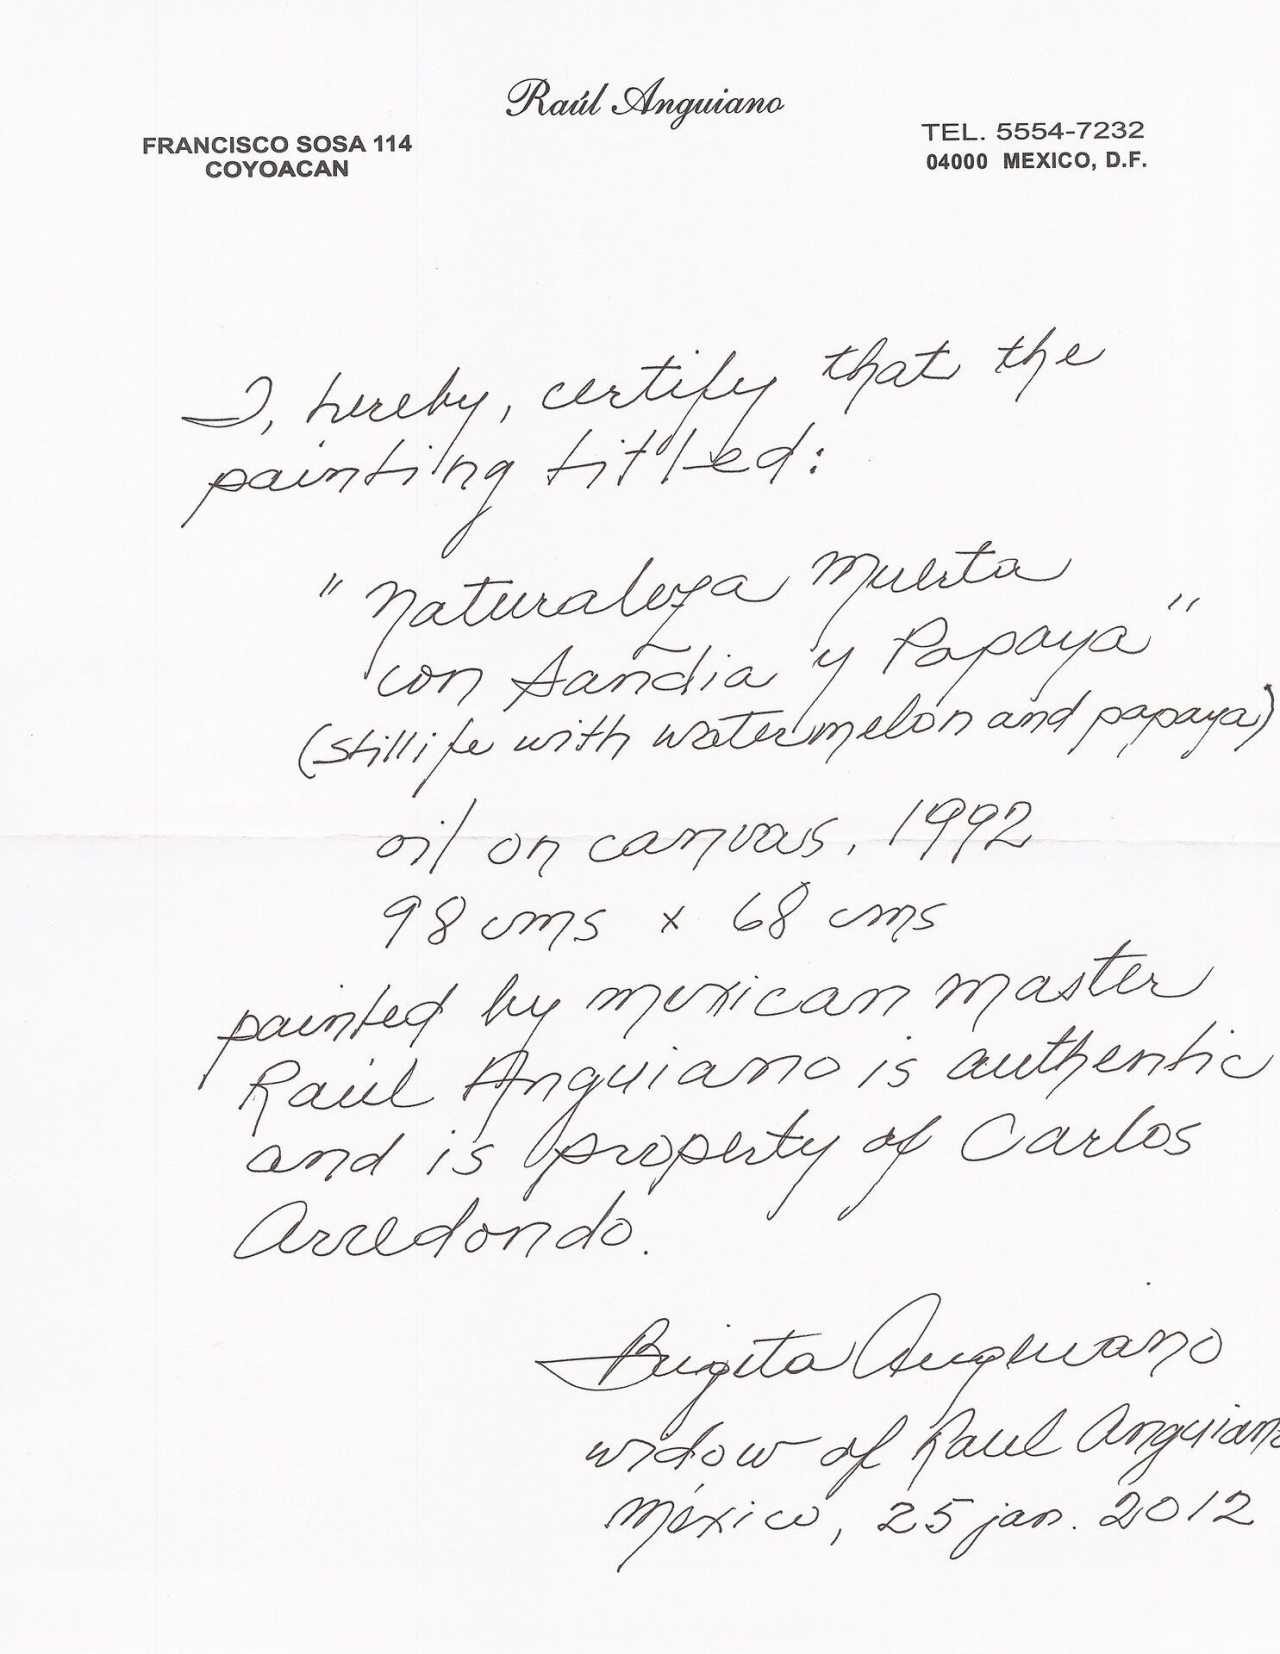 Raúl Anguiano
FRANCISCO SOSA 114
COYOACAN
TEL. 5554-7232
04000 MEXICO, D.F.
I, hereby, certify that the
painting titled:
"Naturaleza Muerta
con Sandia y Papaya"
(stillife with watermelon and papaya)
oil on canvas, 1992
98 cms x 68 cms
painted by mexican master
Raúl Anguiano is authentic
and is property of Carlos
Arredondo.
Brigita Anguiano
widow of Raul Anguiano
México, 25 jan. 2012